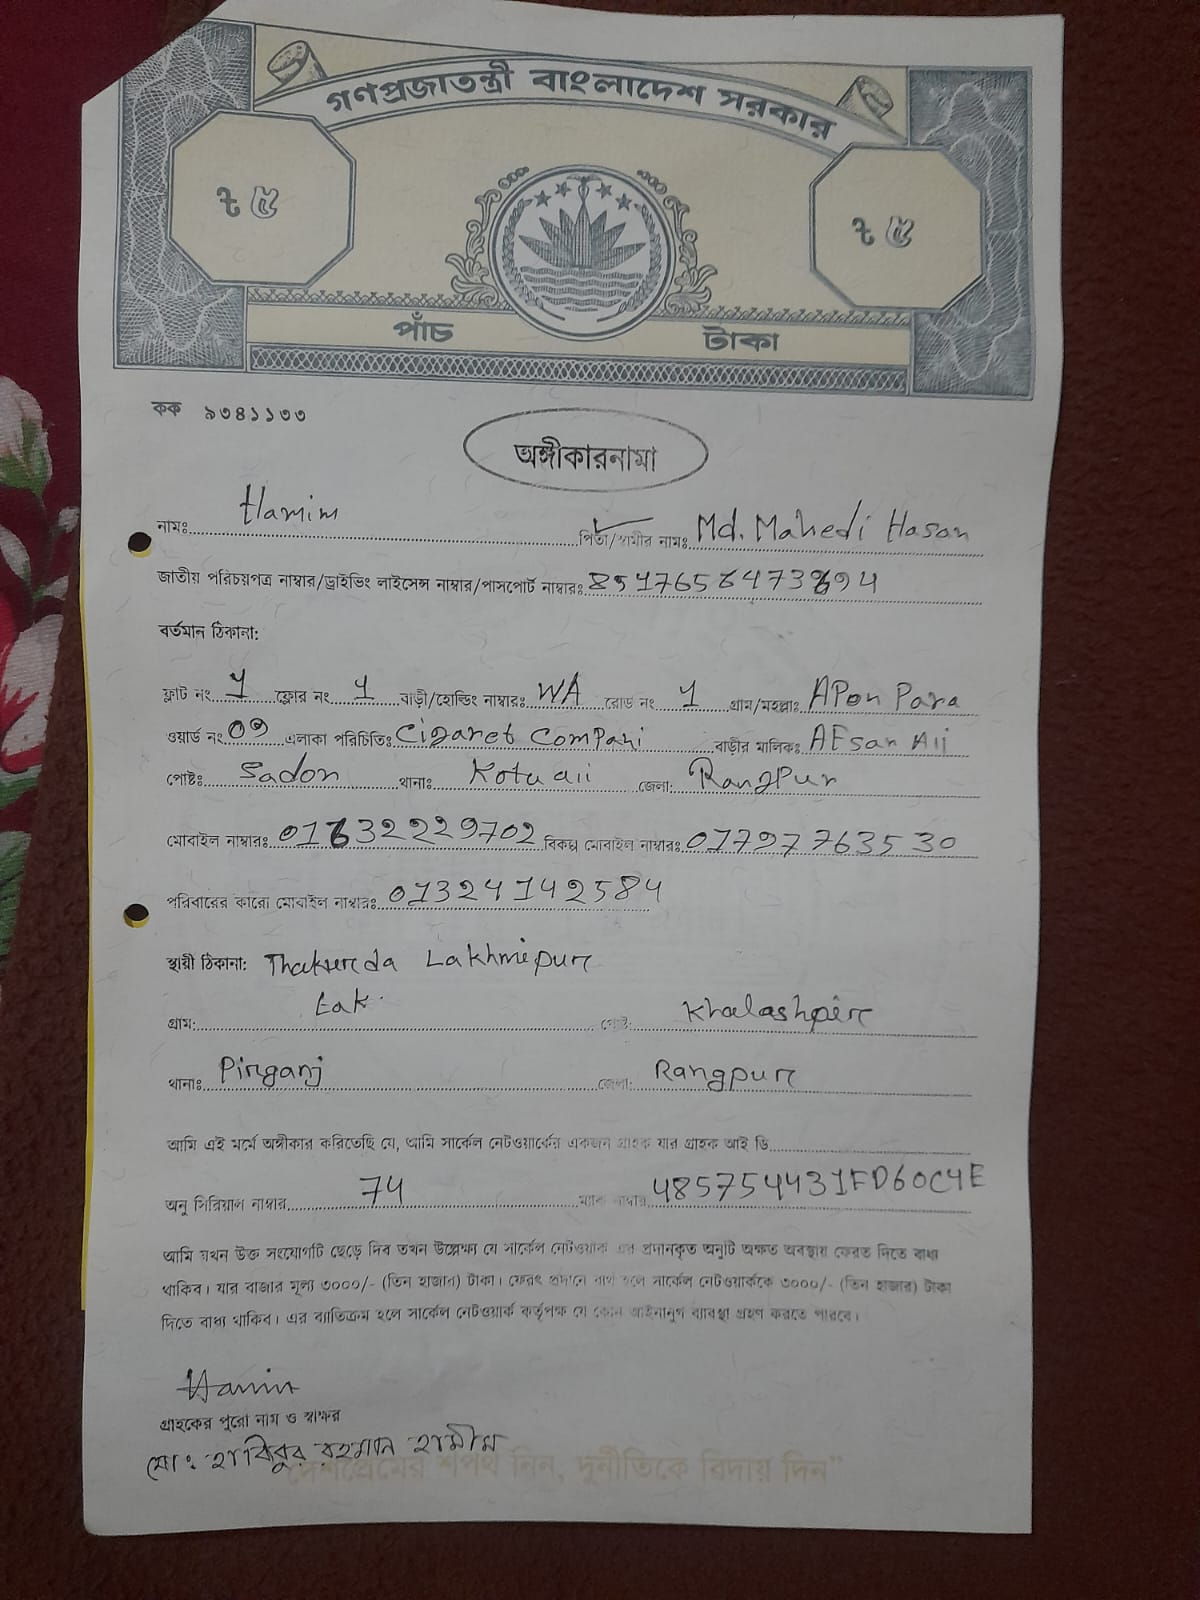 গণপ্রজাতন্ত্রী বাংলাদেশ সরকার
৳ ৫
৳ ৫
পাঁচ টাকা
কক ৯৩৪১১৩৩
অঙ্গীকারনামা
নামঃ Hamim পিতা/স্বামীর নামঃ Md. Mahedi Hasan
জাতীয় পরিচয়পত্র নাম্বার/ড্রাইভিং লাইসেন্স নাম্বার/পাসপোর্ট নাম্বারঃ
বর্তমান ঠিকানা:
ফ্লাট নং 1 ফ্লোর নং 1 বাড়ী/হোল্ডিং নাম্বারঃ WA রোড নং 1 গ্রাম/মহল্লাঃ APon Para
ওয়ার্ড নং 09 এলাকা পরিচিতিঃ Cigaret Compani বাড়ীর মালিকঃ AFsan Ali
পোষ্টঃ Sadon থানাঃ Kotuali জেলা: Rangpur
মোবাইল নাম্বারঃ 01632229702 বিকল্প মোবাইল নাম্বারঃ 01797763530
পরিবারের কারো মোবাইল নাম্বারঃ 01324142584
স্থায়ী ঠিকানা: Thakurda Lakhmipur
গ্রাম: পোষ্ট: Khalashpir
থানাঃ Pirganj জেলা: Rangpur
আমি এই মর্মে অঙ্গীকার করিতেছি যে, আমি সার্কেল নেটওয়ার্কের একজন গ্রাহক যার গ্রাহক আই ডি
অনু সিরিয়াল নাম্বার 74 ম্যাক নাম্বার 485754431FD60C4E
আমি যখন উক্ত সংযোগটি ছেড়ে দিব তখন উল্লেক্ষ্য যে সার্কেল নেটওয়ার্ক এর প্রদানকৃত অনুটি অক্ষত অবস্থায় ফেরত দিতে বাধ্য
থাকিব। যার বাজার মূল্য ৩০০০/- (তিন হাজার) টাকা। ফেরৎ প্রদানে ব্যর্থ হলে সার্কেল নেটওয়ার্ককে ৩০০০/- (তিন হাজার) টাকা
দিতে বাধ্য থাকিব। এর ব্যাতিক্রম হলে সার্কেল নেটওয়ার্ক কর্তৃপক্ষ যে কোন আইনানুগ ব্যাবস্থা গ্রহণ করতে পারবে।
Hamim
গ্রাহকের পুরো নাম ও স্বাক্ষর
মো: হাবিবুর রহমান হামীম
দেশপ্রেমের শপথ নিন, দুর্নীতিকে বিদায় দিন”